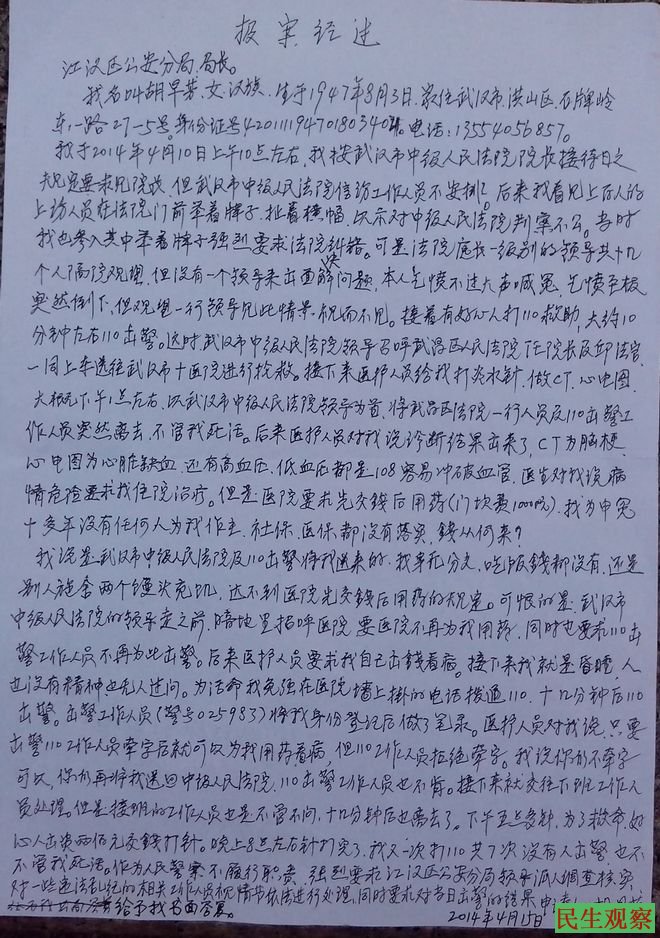 报案经述
江汉区公安分局局长。
我名叫胡早芳、女、汉族、生于1947年8月3日.家住武汉市洪山区石牌岭
东一路27-5号.身份证号42011119470180340.电话:13554056857。
我于2014年4月10日上午10点左右.我按武汉市中级人民法院院长接待日之
规定要求见院长.但武汉市中级人民法院信访工作人员不安排。后来我看见上百人的
上访人员在法院门前举着牌子.扯着横幅.以示对中级人民法院判案不公。当时
我也参入其中举着牌子强烈要求法院纠错。可是法院庭长一级别的领导共十几
个人门高院观望.但没有一个领导来出面解决问题.本人气愤不过大声喊冤.气愤至极
突然倒下.但观望一行领导见此情景.视而不见。接着有好心人打110救助.大约10
分钟左右110出警。这时武汉市中级人民法院领导召呼武昌区人民法院任院长及邱法官
一同上车送往武汉市十医院进行抢救。接下来医护人员给我打炎水针.做CT.心电图.
大概下午1点左右.以武汉市中级人民法院领导为首.将武昌区法院一行人员及110出警工
作人员突然离去.不管我死活。后来医护人员对我说诊断结果出来了.CT为脑梗.
心电图为心脏缺血.还有高血压.低血压都是108容易冲破血管.医生对我谈病
情危险要求我住院治疗。但是医院要求先交钱后用药(门坎费1000元).我为申冤
十多年没有任何人为我作主.社保.医保都没有落实.钱从何来?
我说是武汉市中级人民法院及110出警将我送来的.我身无分文.吃饭钱都没有.还是
别人施舍两个馒头充饥.达不到医院先交钱后用药的规定。可恨的是.武汉市
中级人民法院的领导走之前.暗地里招呼医院.要医院不再为我用药.同时也要求110出
警工作人员不再为此出警。后来医护人员要求我自己出钱看病。接下来我就是昏睡.人
也没有精神也无人过问。为活命我勉强在医院墙上掛的电话拨通110.十几分钟后110
出警。出警工作人员(警号025983)将我身份登记后做了笔录。医护人员对我说.只要
出警110工作人员牵字后就可以为我用药看病.但110工作人员拒绝牵字。我说你们不牵字
可以.你们再将我送回中级人民法院.110出警工作人员也不肯。接下来就交往下班工作人
员处理。但是接班的工作人员也是不管不问.十几分钟后也离去了。下午五点多钟.为了救命.好
心人出资两佰元交钱打针。晚上8点左右针打完了.我又一次打110共7次没有人出警.也不
不管我死活。作为人民警察不履行职责.强烈要求江汉区公安分局领导派人调查核实.
对一些违法乱纪的相关工作人员视情节依法进行处理.同时要求对当日出警的结果
给予我书面答复。
2014年4月15日
民生观察